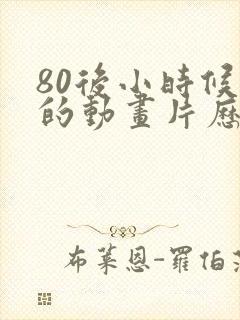 80後小時候
的動畫片歷
布萊恩-羅伯